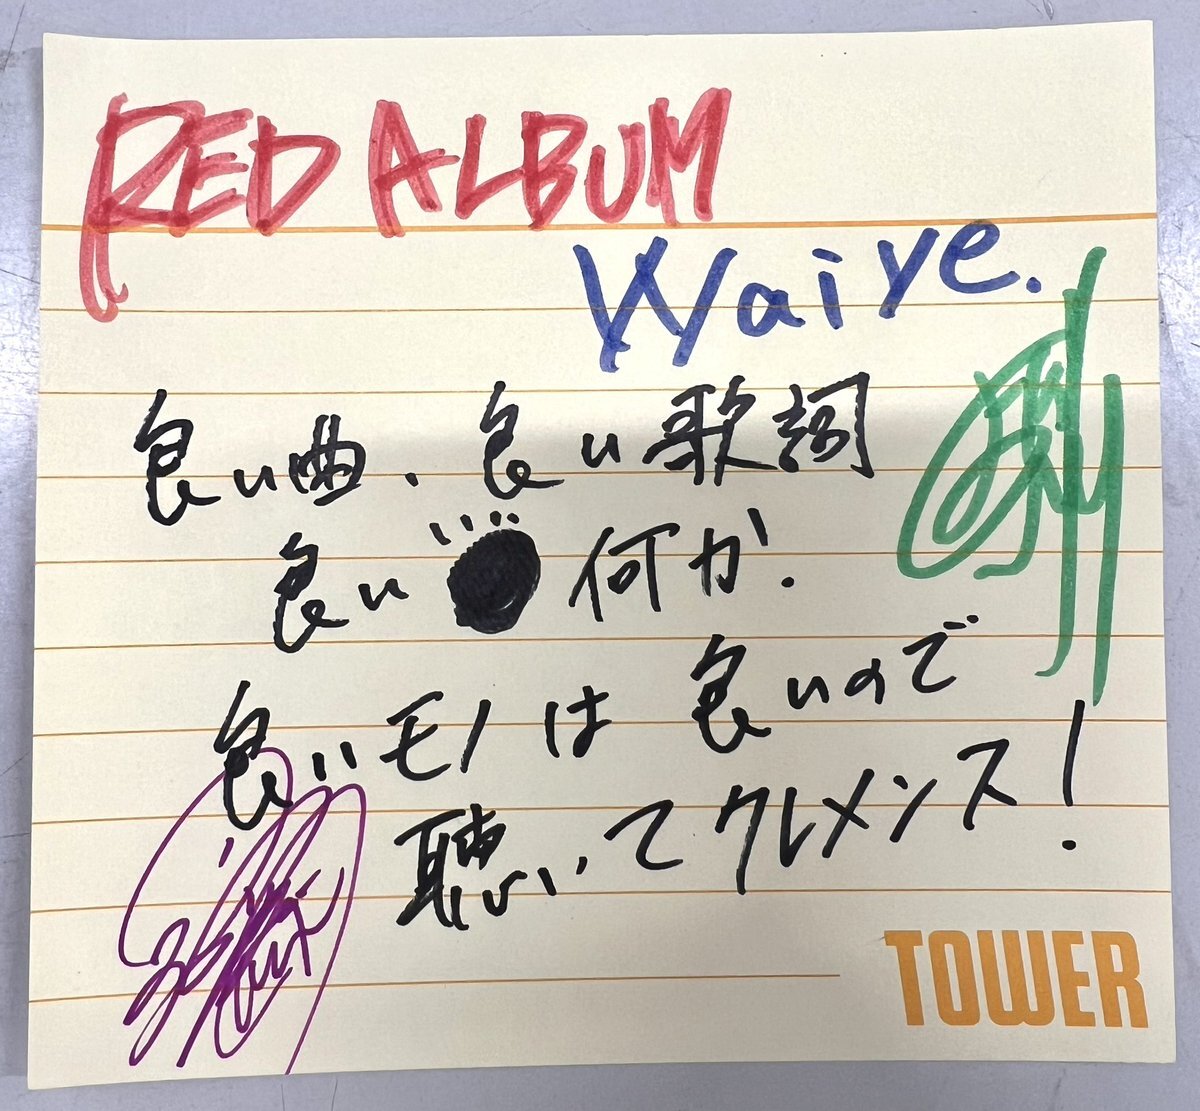 RED ALBUM
Waive.
良い曲、良い歌詞
良い 何か.
良いモノは良いので
聴いてクレメンス!
TOWER